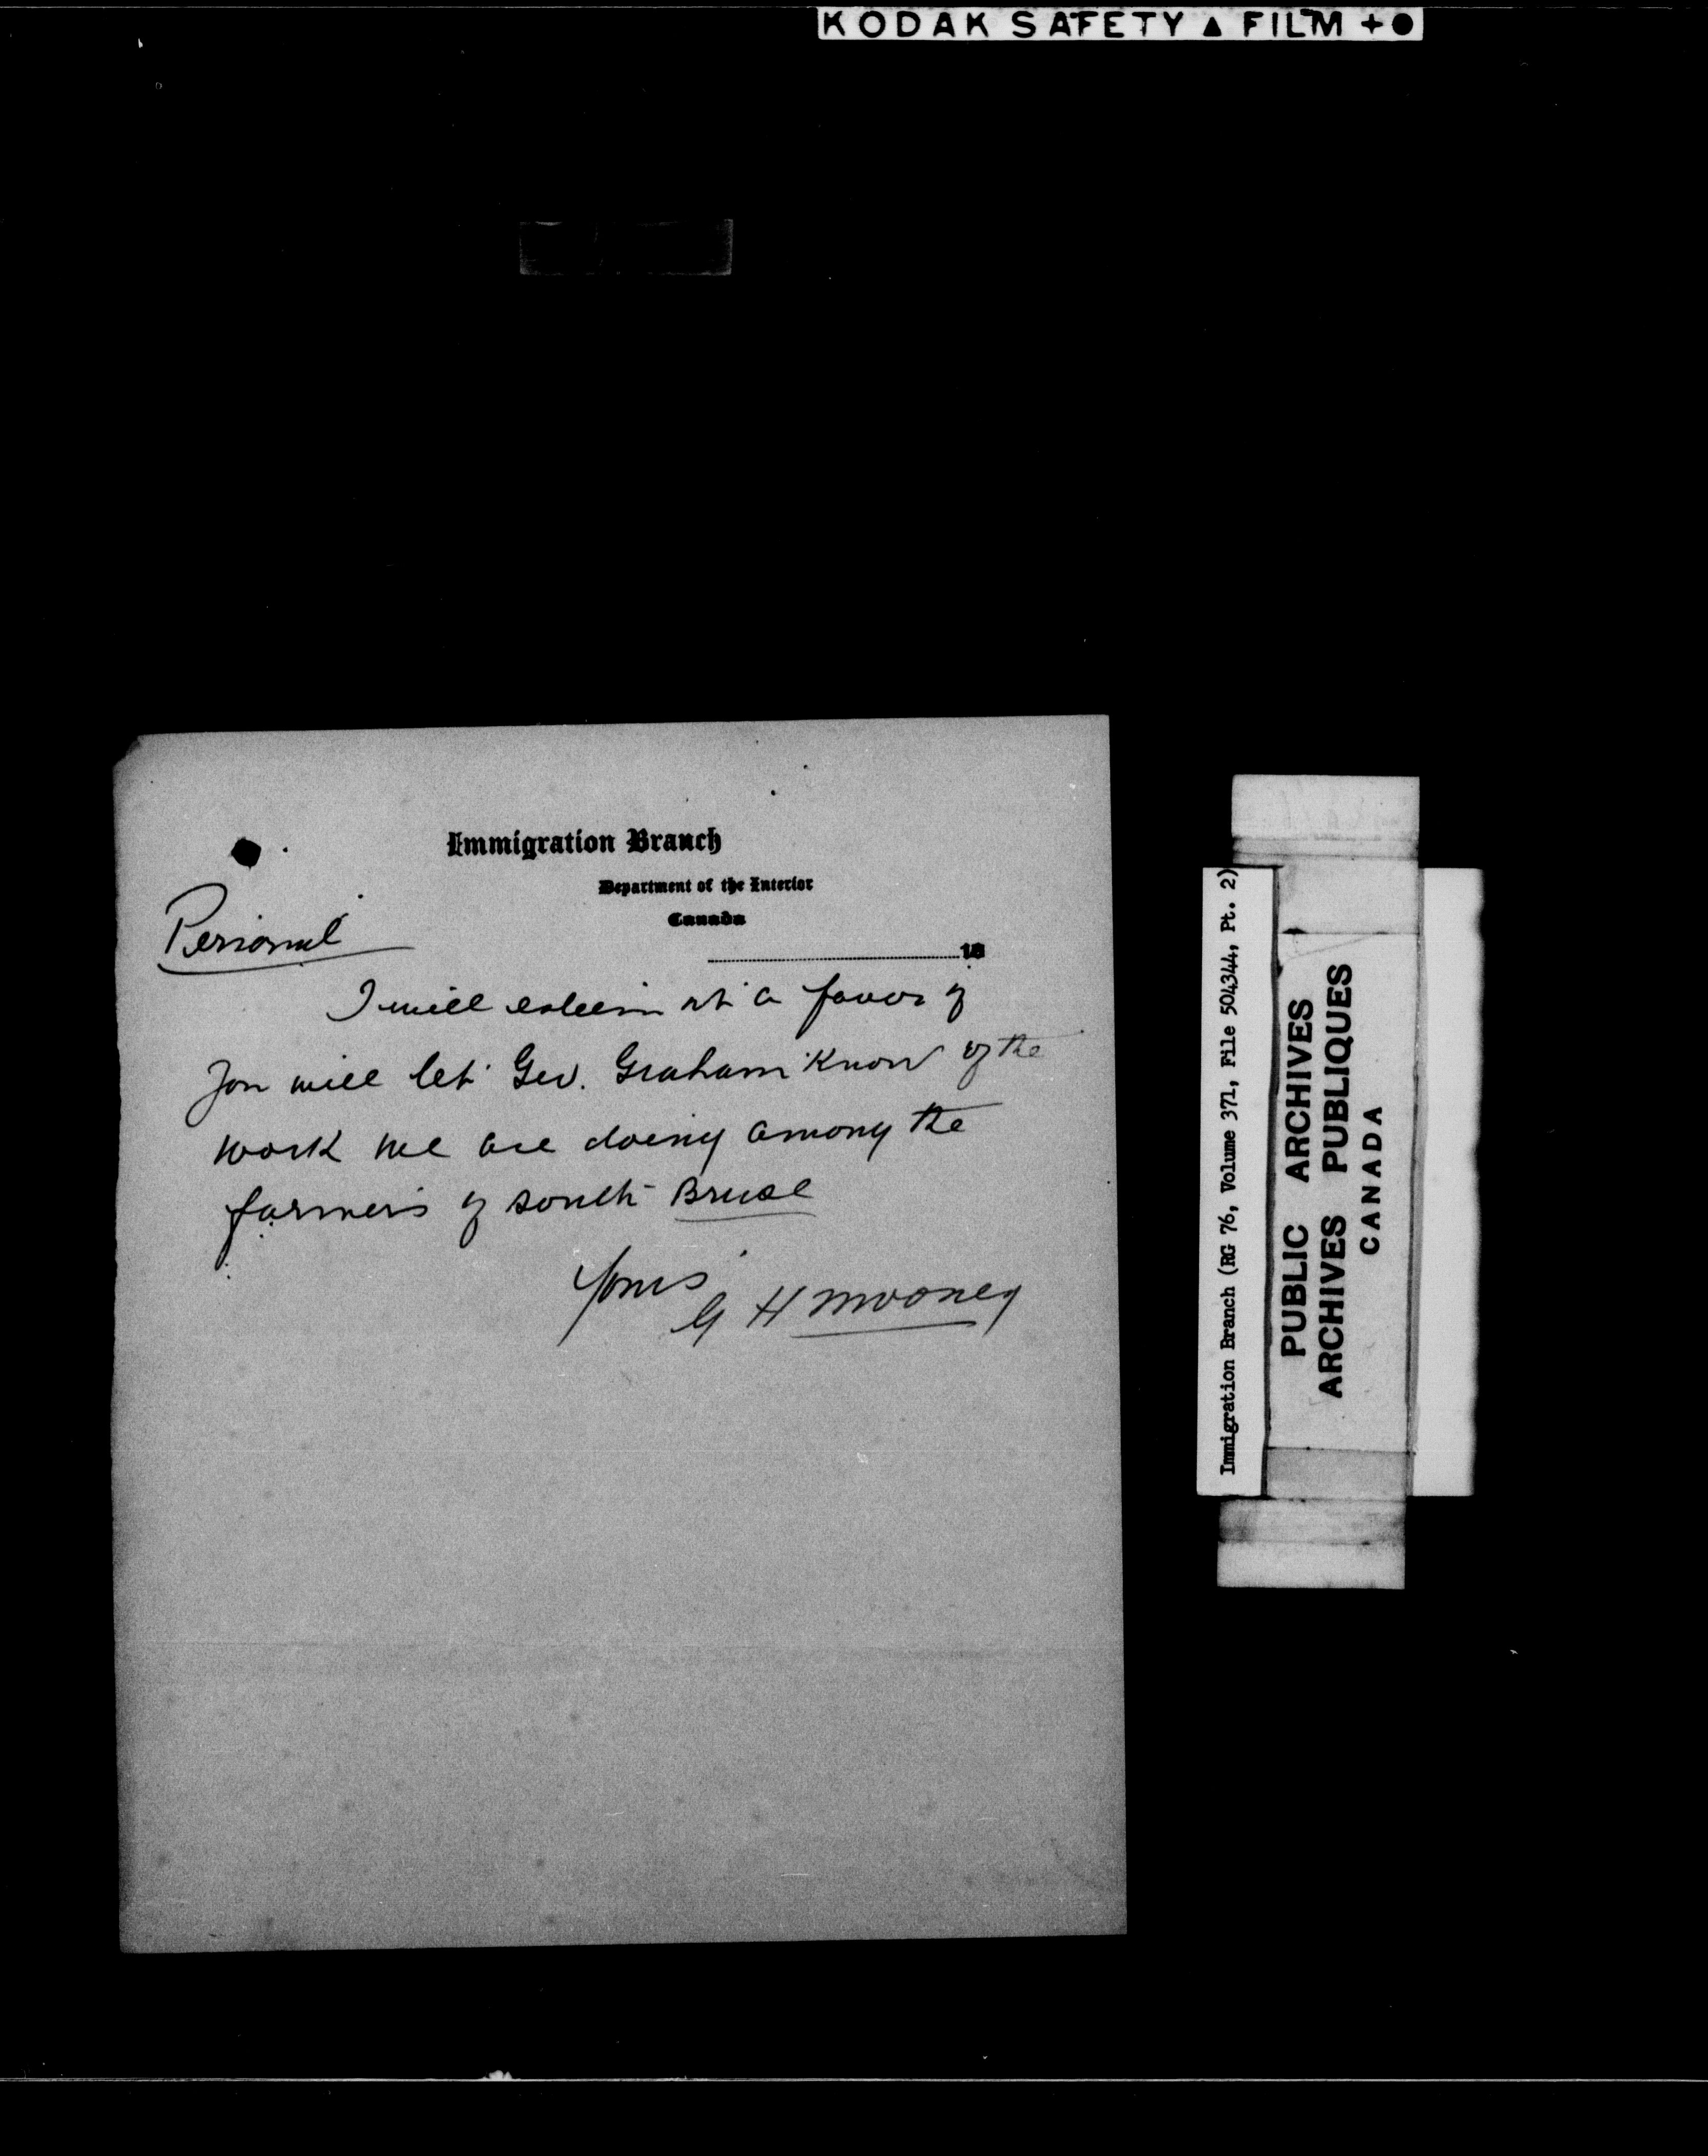 KODAK SAFETY ▲ FILM + ●
Immigration Branch
Department of the Interior
Canada
Personal
18
I will esteem it a favor if
you will let Geo. Graham know of the
work we are doing among the
farmers of South Bruce
Yours
G H Mooney
Immigration Branch (RG 76, Volume 371, File 504344, Pt. 2)
PUBLIC ARCHIVES
ARCHIVES PUBLIQUES
CANADA